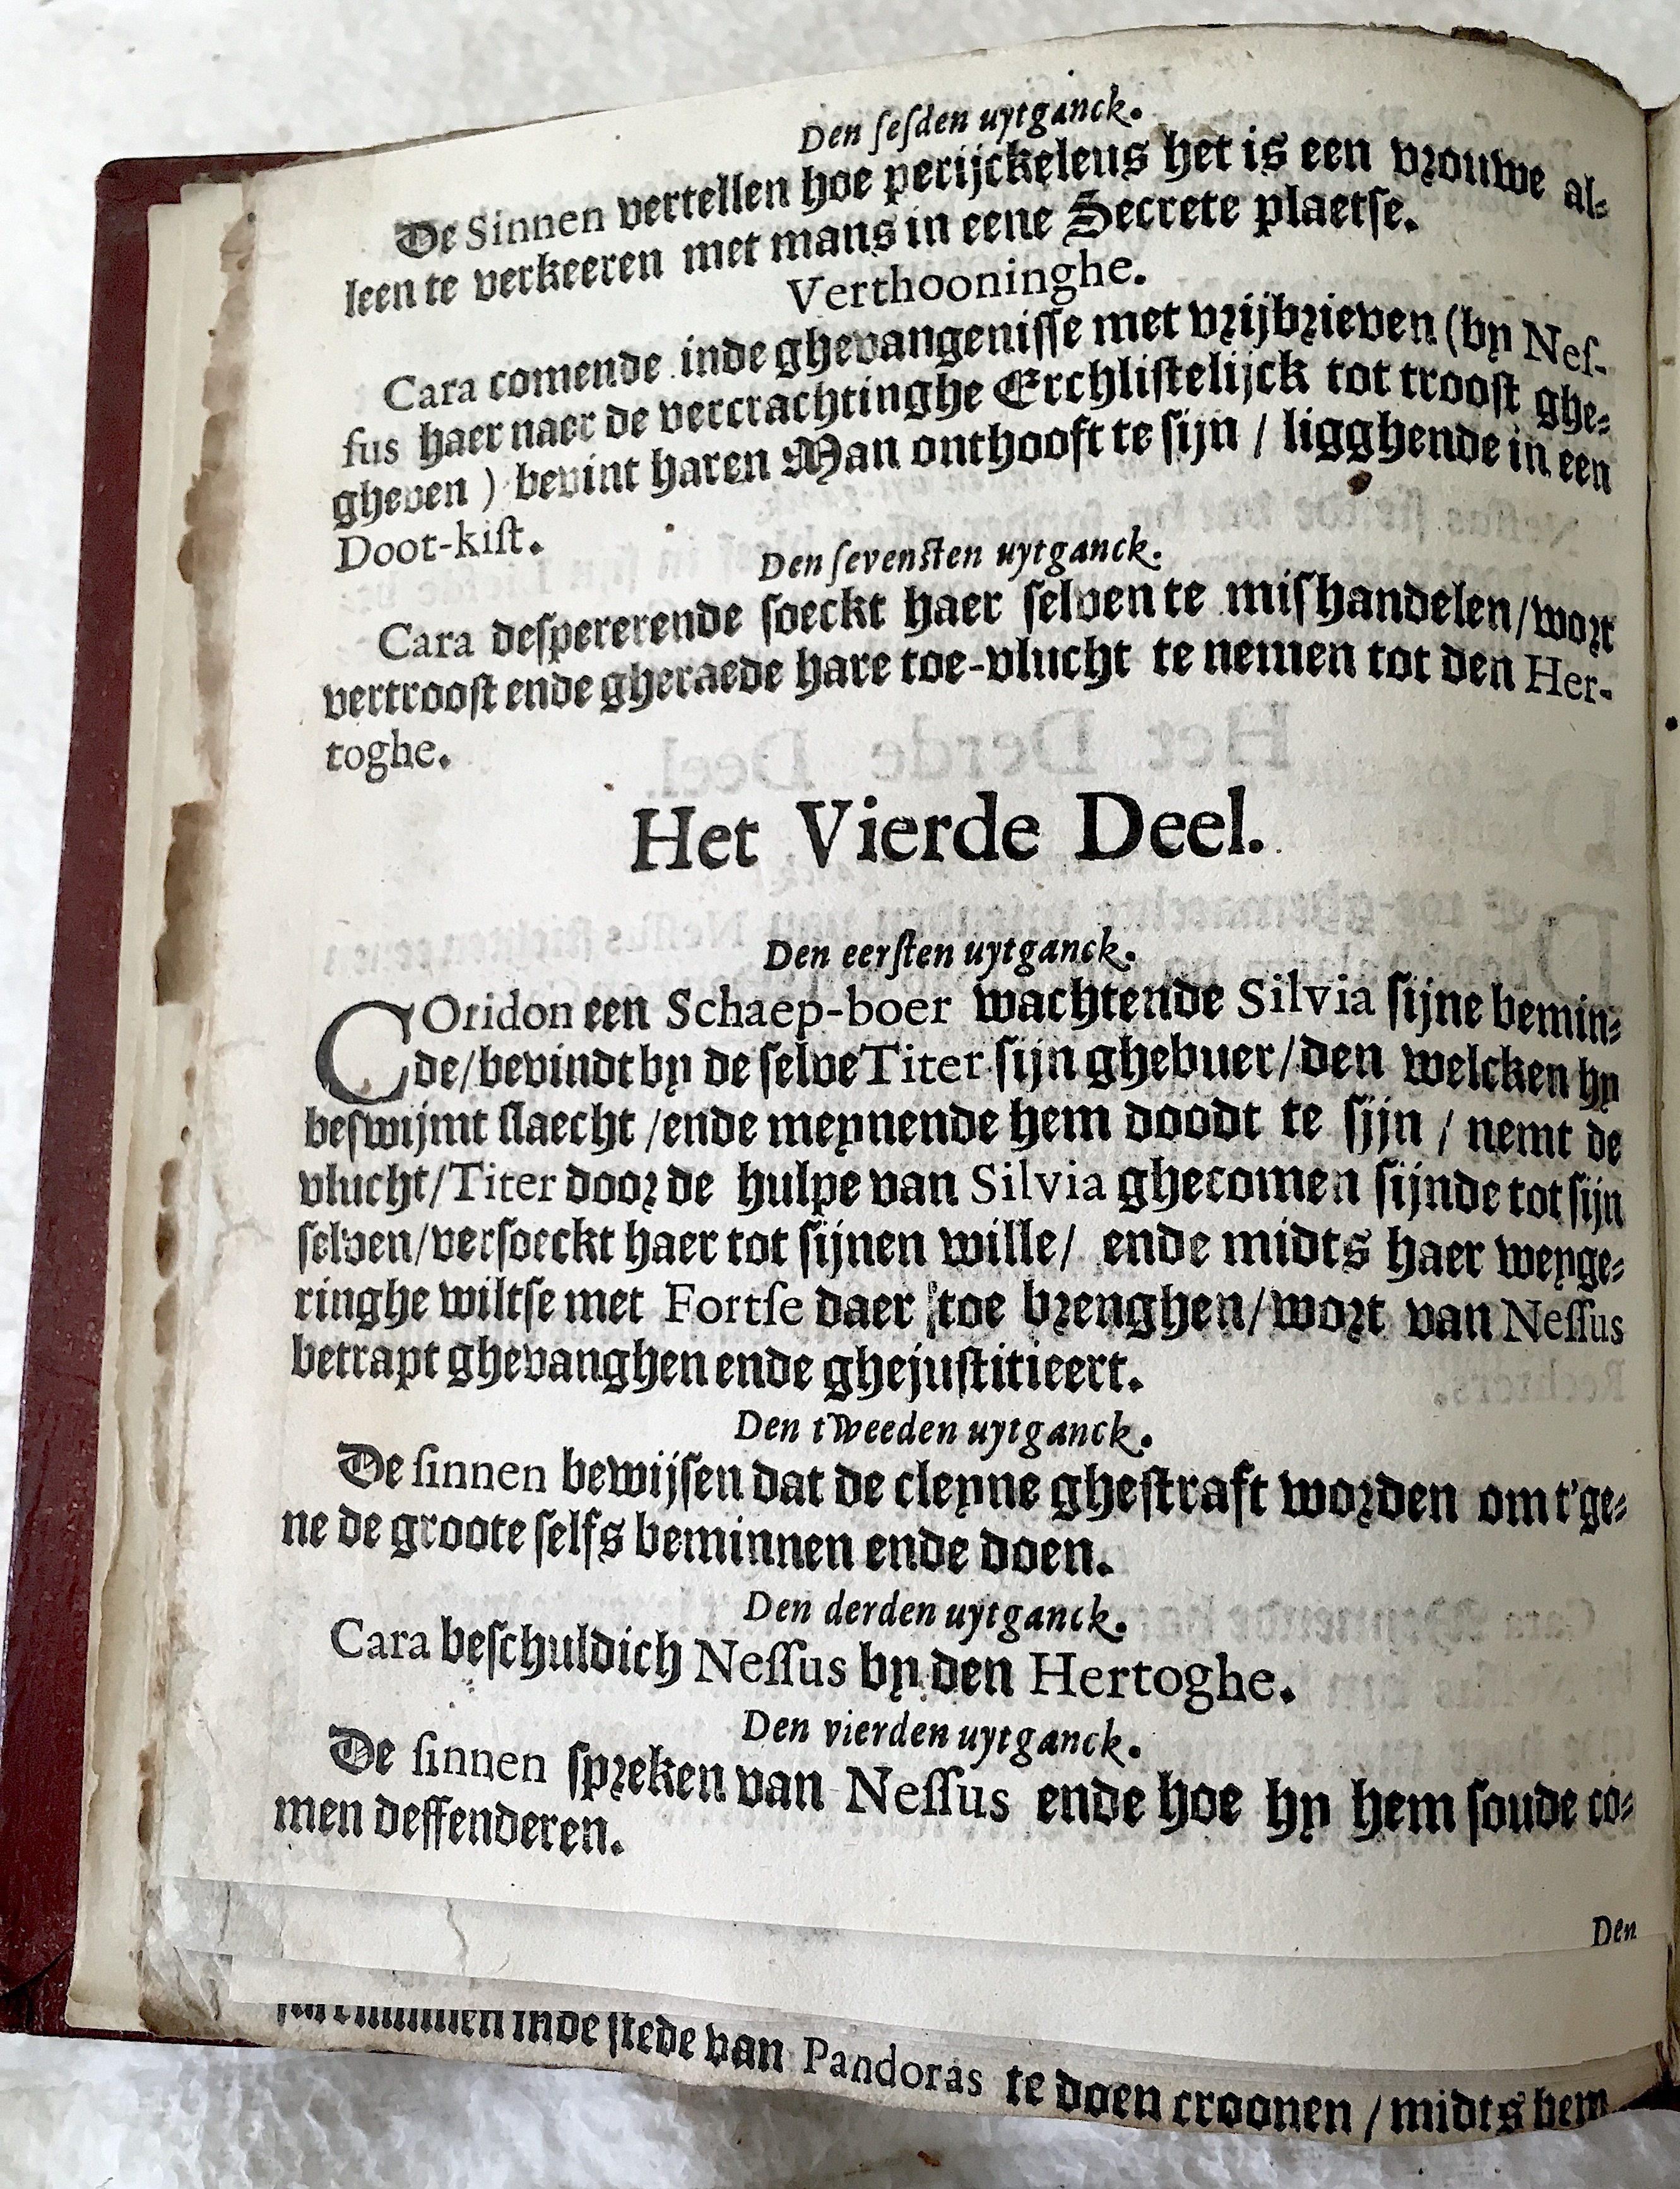 Den sesden uytganck.
De Sinnen vertellen hoe perijckeleus het is een vrouwe al-
leen te verkeeren met mans in eene Secrete plaetse.
Verthooninghe.
Cara comende inde ghevangenisse met vrijbrieven (by Nes-
sus haer naer de vercrachtinghe Erchlistelijck tot troost ghe-
gheven) bevint haren Man onthooft te sijn / ligghende in een
Doot-kist.
Den sevensten uytganck.
Cara despererende soeckt haer selven te mishandelen/wort
vertroost ende gheraede hare toe-vlucht te nemen tot den Her-
toghe.
Het Vierde Deel.
Den eersten uytganck.
COridon een Schaep-boer wachtende Silvia sijne bemin-
de/bevindt by de selve Titer sijn ghebuer/den welcken hy
beswijmt slaecht /ende meynende hem doodt te sijn / nemt de
vlucht/Titer door de hulpe van Silvia ghecomen sijnde tot sijn
selven/versoeckt haer tot sijnen wille/ ende midts haer weyge-
ringhe wiltse met Fortse daer toe brenghen/wort van Nessus
betrapt ghevanghen ende ghejustitieert.
Den tweeden uytganck.
De sinnen bewijsen dat de cleyne ghestraft worden om t'ge-
ne de groote selfs beminnen ende doen.
Den derden uytganck.
Cara beschuldich Nessus by den Hertoghe.
Den vierden uytganck.
De sinnen spreken van Nessus ende hoe hy hem soude co-
men deffenderen.
Den
inde stede van Pandoras te doen croonen / midts hem